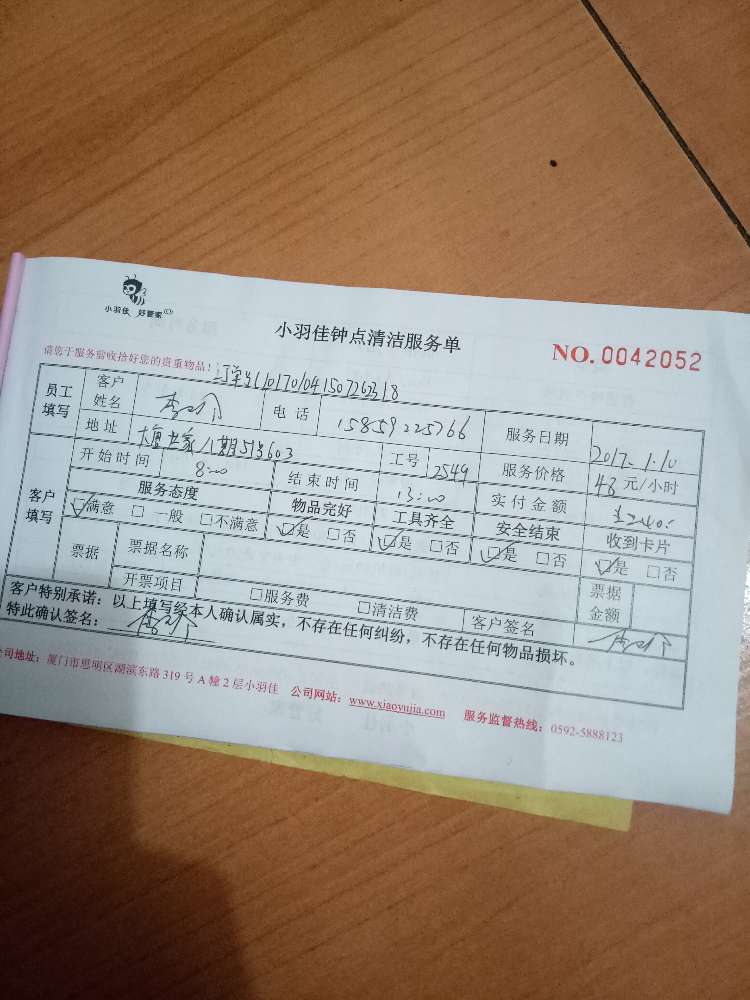 小羽佳 好管家
小羽佳钟点清洁服务单
NO. 0042052
请您于服务前收拾好您的贵重物品!
员工填写 客户姓名 电话 15859225766 服务日期 2017.1.10
地址 工号 2549 服务价格 48 元/小时
客户填写 开始时间 8:00 结束时间 13:00 实付金额
服务态度 物品完好 工具齐全 安全结束 收到卡片
☑满意 □一般 □不满意 ☑是 □否 ☑是 □否 ☑是 □否 ☑是 □否
票据 票据名称 票据金额
开票项目 □服务费 □清洁费 客户签名
客户特别承诺:以上填写经本人确认属实,不存在任何纠纷,不存在任何物品损坏。
特此确认签名:
公司地址:厦门市思明区湖滨东路319号A幢2层小羽佳 公司网站:www.xiaoyujia.com 服务监督热线:0592-5888123